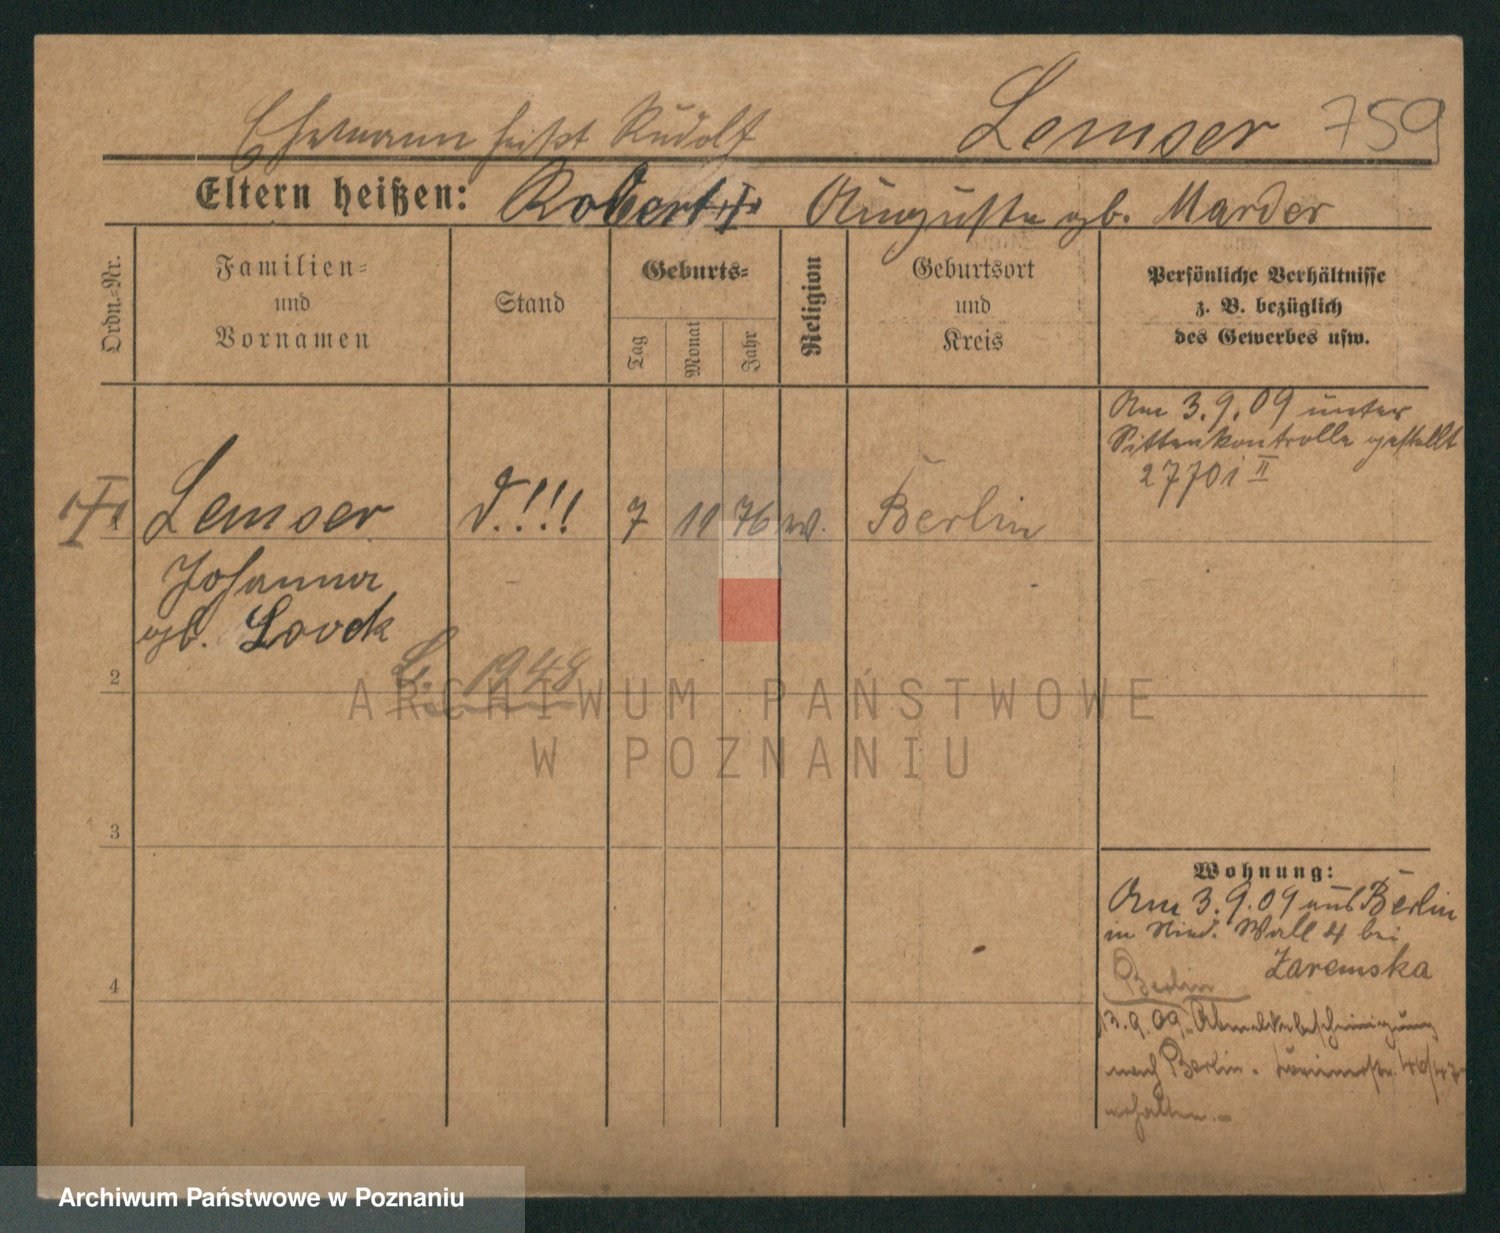 Ehemann heißt Rudolf Lemser 759
Eltern heißen: Robert Auguste gb. Marder
Ordn.-Nr.
Familien-
und
Vornamen
Stand
Geburts-
Tag
Monat
Jahr
Religion
Geburtsort
und
Kreis
Persönliche Verhältnisse
z. B. bezüglich
des Gewerbes usw.
Am 3.9.09 unter
Sittenkontrolle gestellt
27701 II
Lemser
!!!
7 11 76 Berlin
Johanna
gb.
1948
2
3
4
Wohnung:
Am 3.9.09 aus Berlin
in Nied. Wall 4 bei
Zaremska
Berlin
13.9.09. Abmeldebescheinigung
nach Berlin. 46/47
erhalten.
ARCHIWUM PAŃSTWOWE
W POZNANIU
Archiwum Państwowe w Poznaniu